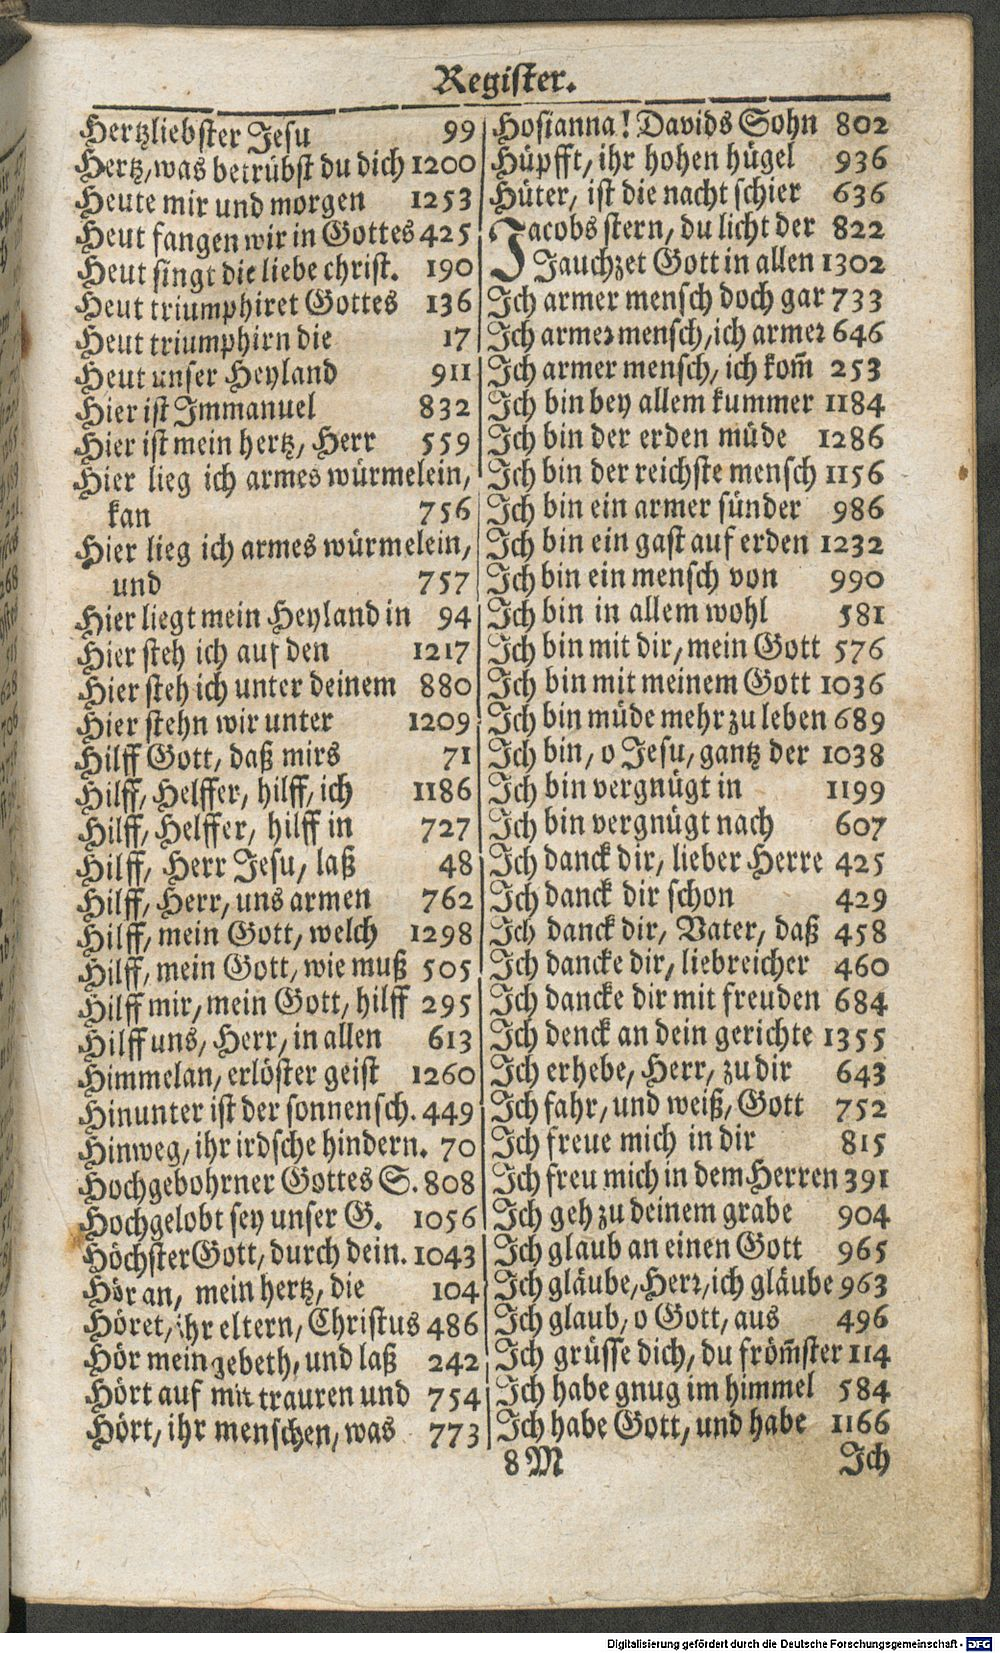 Register.
Hertzliebster Jesu 99
Hertz, was betrübst du dich 1200
Heute mir und morgen 1253
Heut fangen wir in Gottes 425
Heut singt die liebe christ. 190
Heut triumphiret Gottes 136
Heut triumphirn die 17
Heut unser Heyland 911
Hier ist Immanuel 832
Hier ist mein hertz, Herr 559
Hier lieg ich armes würmelein,
kan 756
Hier lieg ich armes würmelein,
und 757
Hier liegt mein Heyland in 94
Hier steh ich auf den 1217
Hier steh ich unter deinem 880
Hier stehn wir unter 1209
Hilff Gott, daß mirs 71
Hilff, Helffer, hilff, ich 1186
Hilff, Helffer, hilff in 727
Hilff, Herr Jesu, laß 48
Hilff, Herr, uns armen 762
Hilff, mein Gott, welch 1298
Hilff, mein Gott, wie muß 505
Hilff mir, mein Gott, hilff 295
Hilff uns, Herr, in allen 613
Himmelan, erlöster geist 1260
Hinunter ist der sonnensch. 449
Hinweg, ihr irdsche hindern. 70
Hochgebohrner Gottes S. 808
Hochgelobt sey unser G. 1056
Höchster Gott, durch dein. 1043
Hör an, mein hertz, die 104
Höret, ihr eltern, Christus 486
Hör mein gebeth, und laß 242
Hört auf mit trauren und 754
Hört, ihr menschen, was 773
Hosianna! Davids Sohn 802
Hüpfft, ihr hohen hügel 936
Hüter, ist die nacht schier 636
Jacobs stern, du licht der 822
Jauchzet Gott in allen 1302
Ich armer mensch doch gar 733
Ich armer mensch, ich armer 646
Ich armer mensch, ich kom̄ 253
Ich bin bey allem kummer 1184
Ich bin der erden müde 1286
Ich bin der reichste mensch 1156
Ich bin ein armer sünder 986
Ich bin ein gast auf erden 1232
Ich bin ein mensch von 990
Ich bin in allem wohl 581
Ich bin mit dir, mein Gott 576
Ich bin mit meinem Gott 1036
Ich bin müde mehr zu leben 689
Ich bin, o Jesu, gantz der 1038
Ich bin vergnügt in 1199
Ich bin vergnügt nach 607
Ich danck dir, lieber Herre 425
Ich danck dir schon 429
Ich danck dir, Vater, daß 458
Ich dancke dir, liebreicher 460
Ich dancke dir mit freuden 684
Ich denck an dein gerichte 1355
Ich erhebe, Herr, zu dir 643
Ich fahr, und weiß, Gott 752
Ich freue mich in dir 815
Ich freu mich in dem Herren 391
Ich geh zu deinem grabe 904
Ich glaub an einen Gott 965
Ich gläube, Herr, ich gläube 963
Ich glaub, o Gott, aus 496
Ich grüsse dich, du from̄ster 114
Ich habe gnug im himmel 584
Ich habe Gott, und habe 1166
8 M Ich
Digitalisierung gefördert durch die Deutsche Forschungsgemeinschaft - DFG